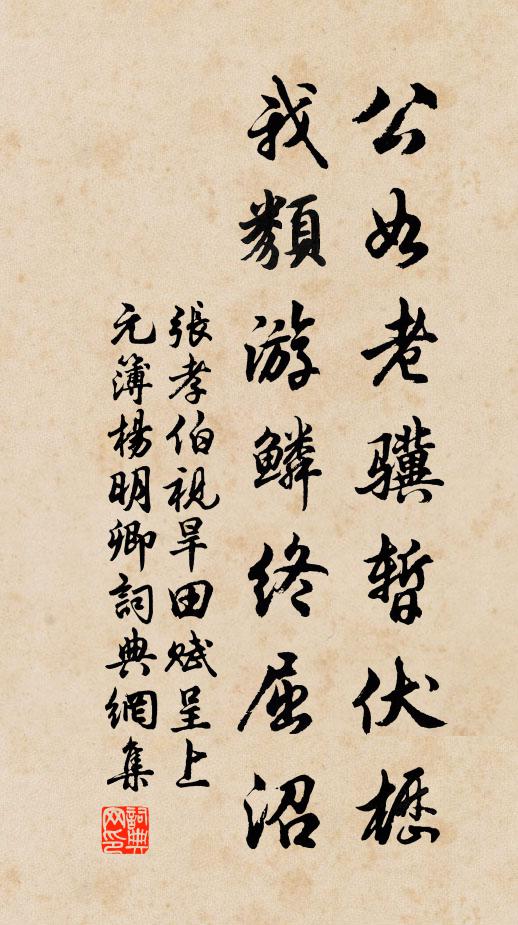 公如老驥暫伏櫪
我類游鱗終屈沼
張孝伯視旱田賦呈上
元簿楊明卿詞典網集
詞典网印